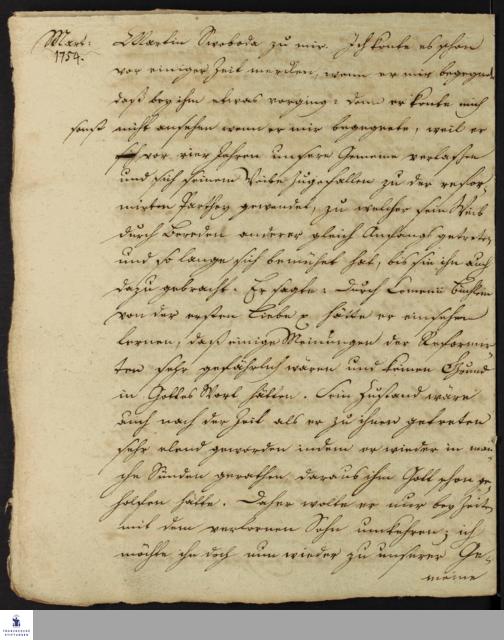 Mart:
1754.
Martin Swoboda zu mir. Ich konte es schon
vor einiger Zeit merken, wenn er mir begegnet
daß bey ihm etwas vorging: denn er konte mich
sonst nicht ansehen wenn er mir begegnete, weil er
vor vier Jahren unsere Gemeine verlaßen
und sich seinem Weibe zugefallen zu der refor-
mirten Parthey gewendet, zu welcher sein Weib
durch Bereden anderer gleich Anfangs getreten
und so lange sich bemühet hat, bis sie ihn auch
dazu gebracht. Er sagte: Durch Comenii Büchlein
von der ersten Liebe p hätte er einsehen
lernen, daß einige Meinungen der Reformir-
ten sehr gefährlich wären und keinen Grund
in Gottes Wort hätten. Sein Zustand wäre
auch nach der Zeit als er zu ihnen getreten
sehr elend geworden indem er wieder in man-
che Sünden gerathen, daraus ihm Gott schon ge-
holfen hätte. Daher wolte er nur bey Zeiten
mit dem verlornen Sohn umkehren; ich
möchte ihn doch nun wieder zu unserer Ge-
meine
FRANCKESCHE
STIFTUNGEN